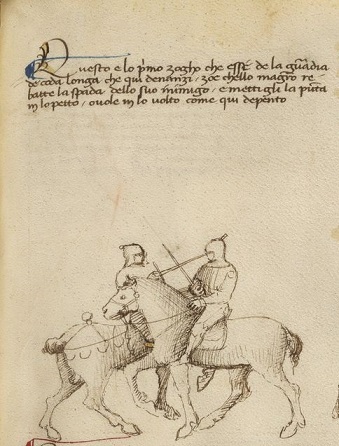 Questo e lo p'mo zogho che esse de la guardia
de coda longa che qui denanzi, zoe che lo magro re-
batte la spada dello suo inimigo, e metti gli la punta
in lo petto, o vole in lo volto come qui depento